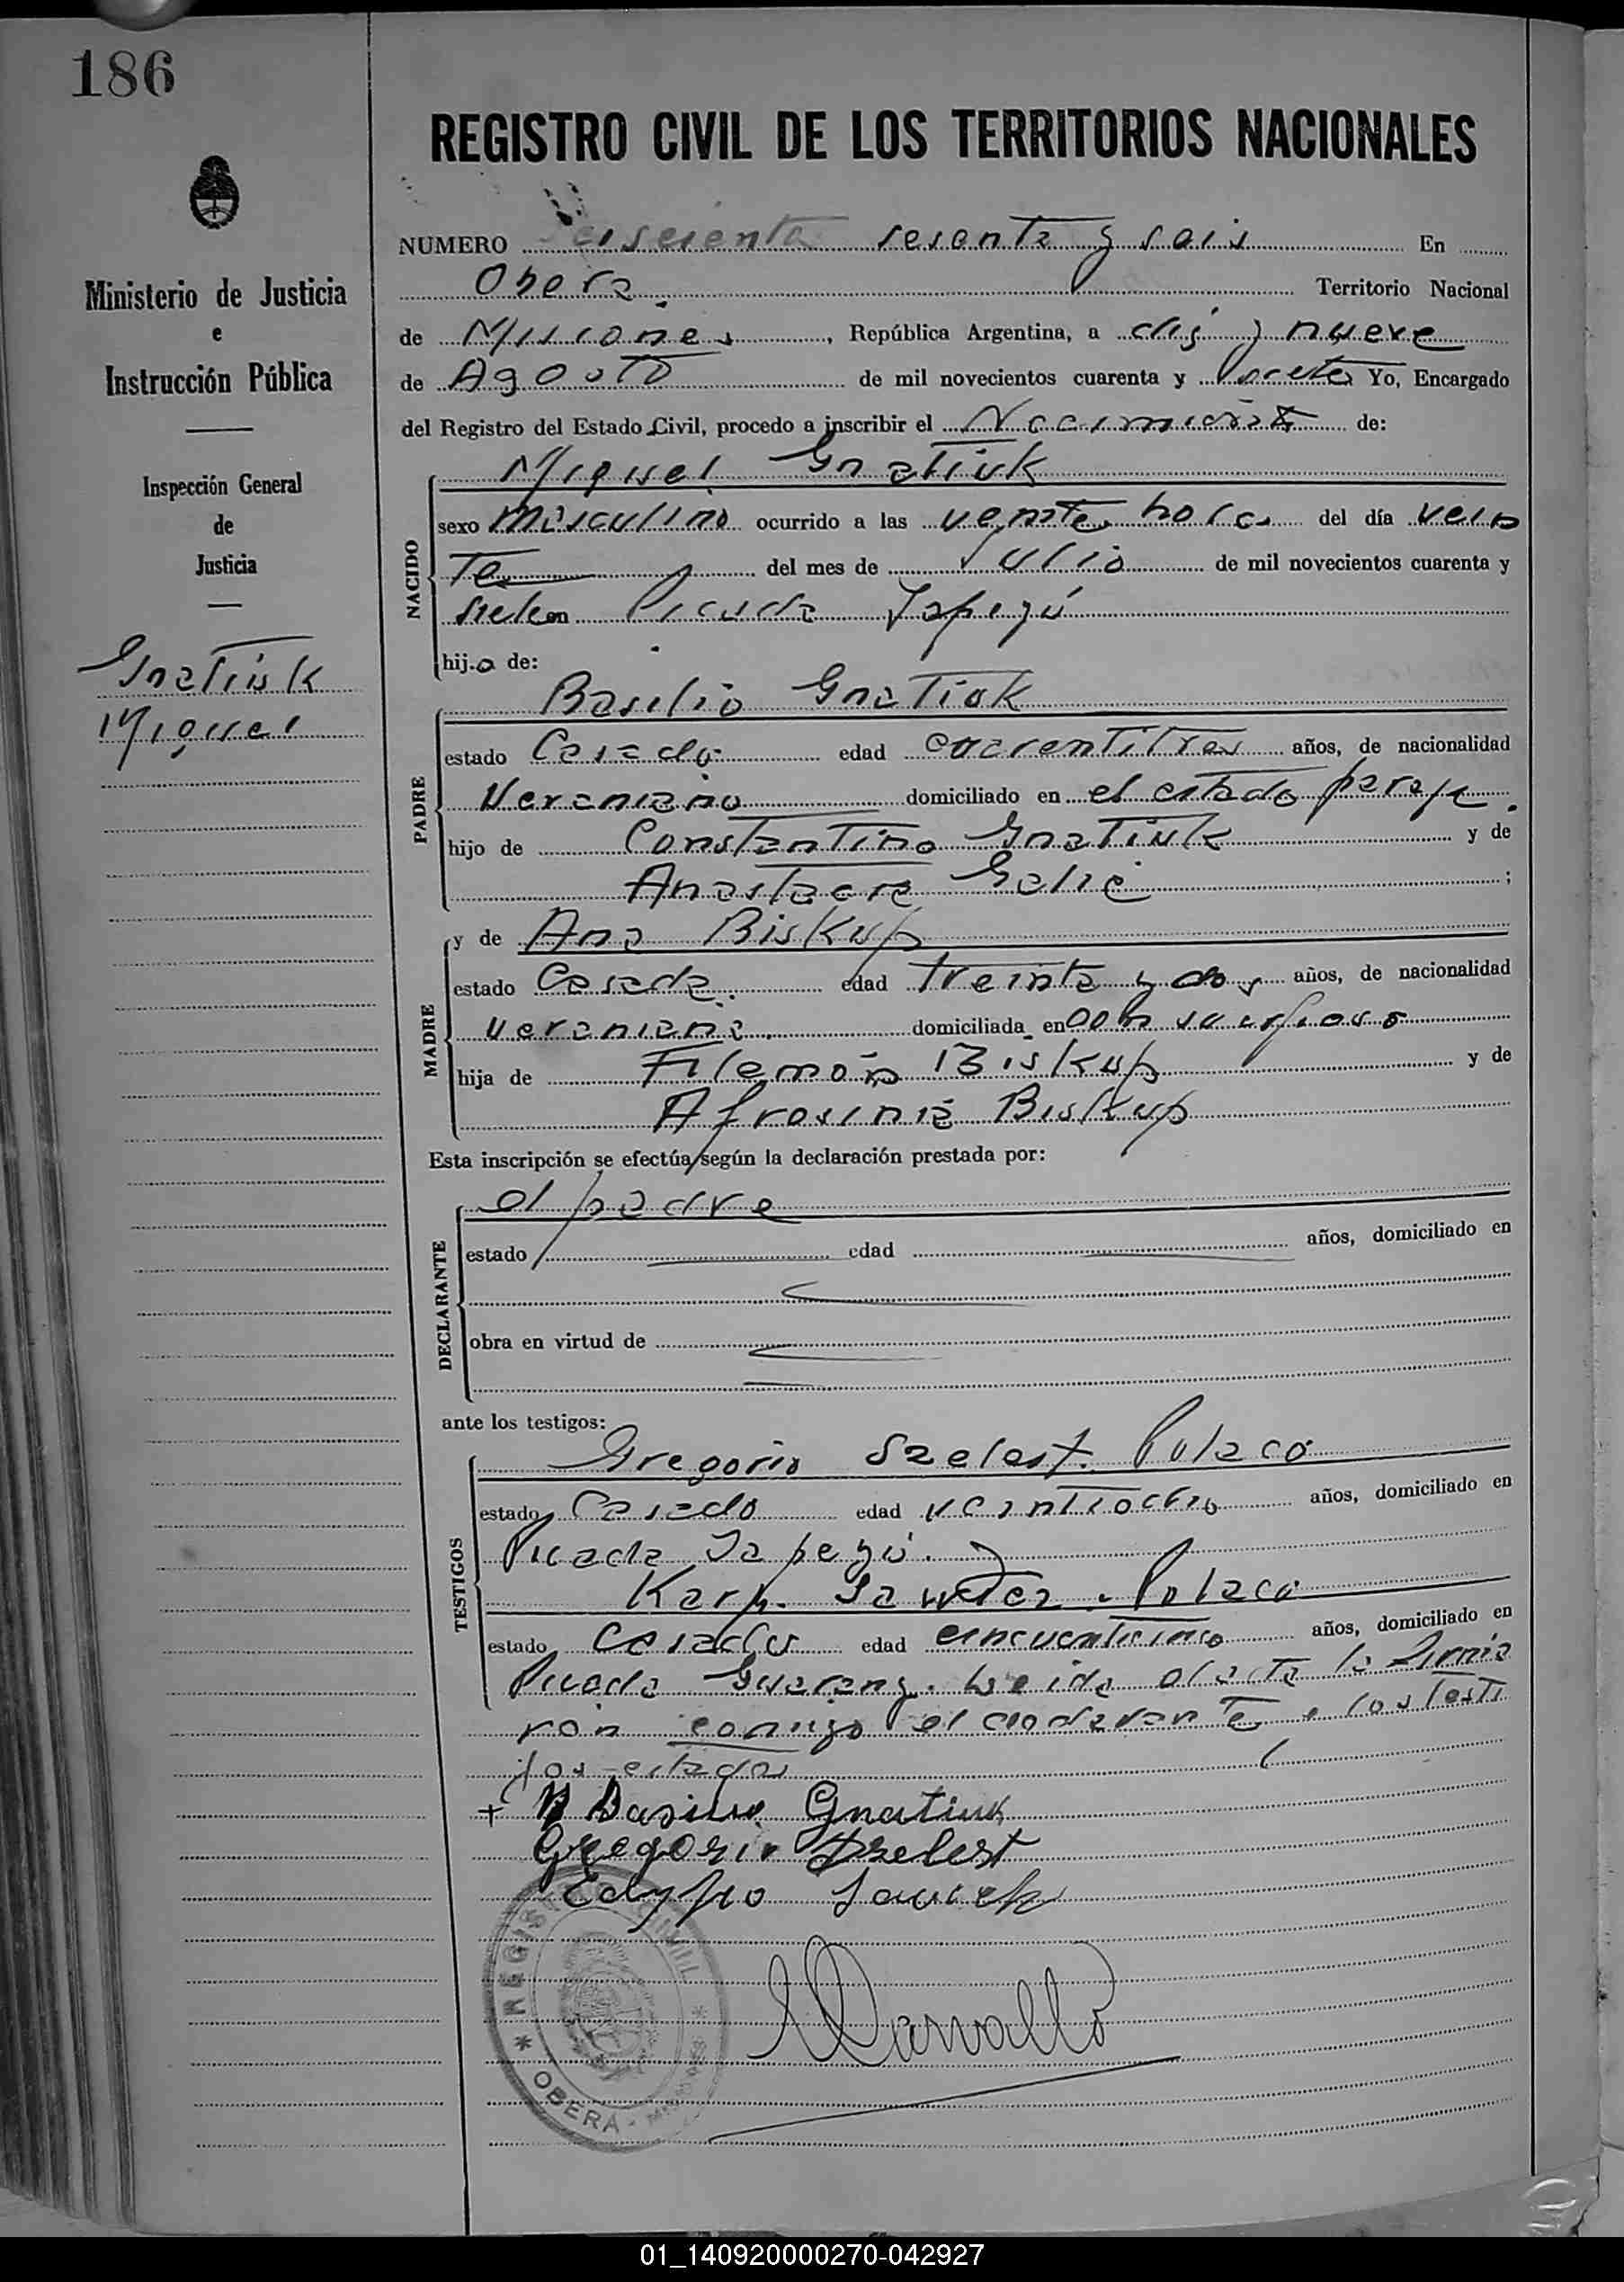 186
REGISTRO CIVIL DE LOS TERRITORIOS NACIONALES
Ministerio de Justicia
e
Instrucción Pública
Inspección General
de
Justicia
Gnatiuk
Miguel
NUMERO seiscienta sesenta y seis En
Obera Territorio Nacional
de Misiones, República Argentina, a diez y nueve
de Agosto de mil novecientos cuarenta y Yo, Encargado
del Registro del Estado Civil, procedo a inscribir el Nacimiento de:
NACIDO
Miguel Gnatiuk
sexo Masculino ocurrido a las veinte horas del día vein
te del mes de Julio de mil novecientos cuarenta y
siete en Picada Yapeyú
hijo de:
PADRE
Basilio Gnatiuk
estado Casado edad cuarentitres años, de nacionalidad
Ucraniano domiciliado en el citado paraje.
hijo de Constantino Gnatiuk y de
Anastacia Galie;
MADRE
y de Ana Biskup
estado Casada edad treinta y dos años, de nacionalidad
ucraniana domiciliada en con su esposo
hija de Filemón Biskup y de
Afrosinia Biskup
Esta inscripción se efectúa según la declaración prestada por:
DECLARANTE
el padre
estado edad años, domiciliado en
obra en virtud de
ante los testigos:
TESTIGOS
Gregorio Szelest. Polaco
estado Casado edad veintiocho años, domiciliado en
Picada Yapeyú.
Karp. Polaco
estado Casado edad cincuenticinco años, domiciliado en
Picada Guarany. Leida el acta la firma
ron conmigo el declarante y los testi
gos citados
+ Basilio Gnatiuk
Gregorio Szelest
REGISTRO CIVIL * OBERÁ - MISIONES *
01_140920000270-042927